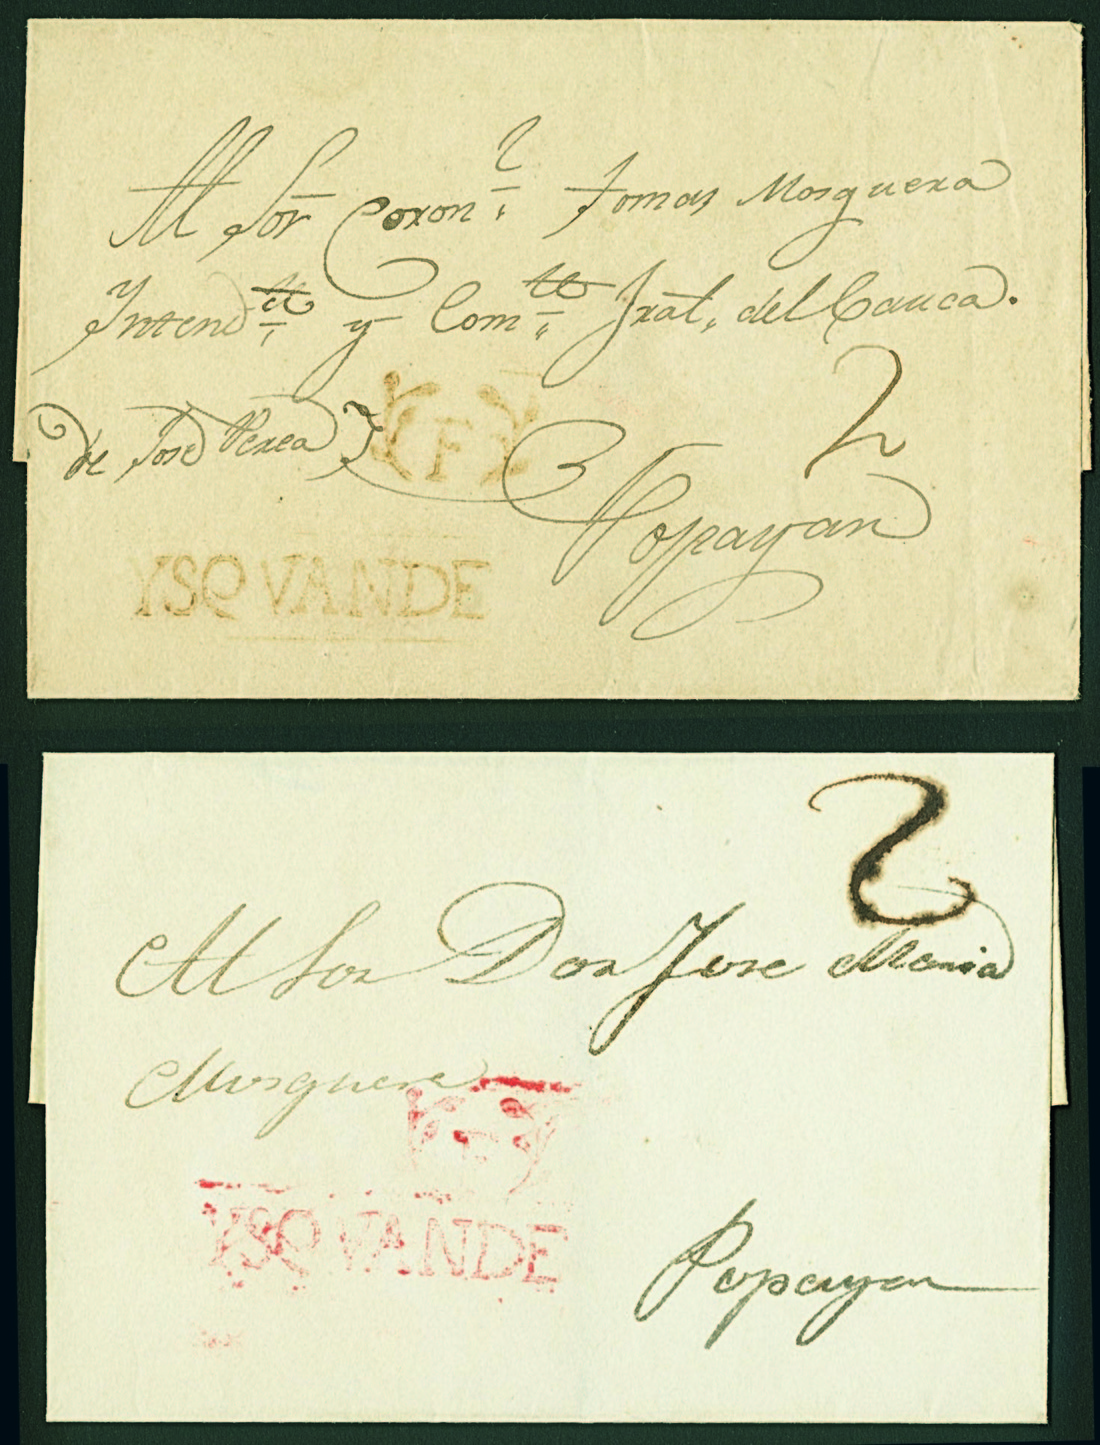 Al Sor Coron.l Tomas Mosquera
Yntend.te y Com.te Jral, del Cauca.
2
de José Perea
F
Popayan
YSQVANDE
2
Al Sor Don Jose Maria
Mosquera
F
YSQVANDE
Popayan